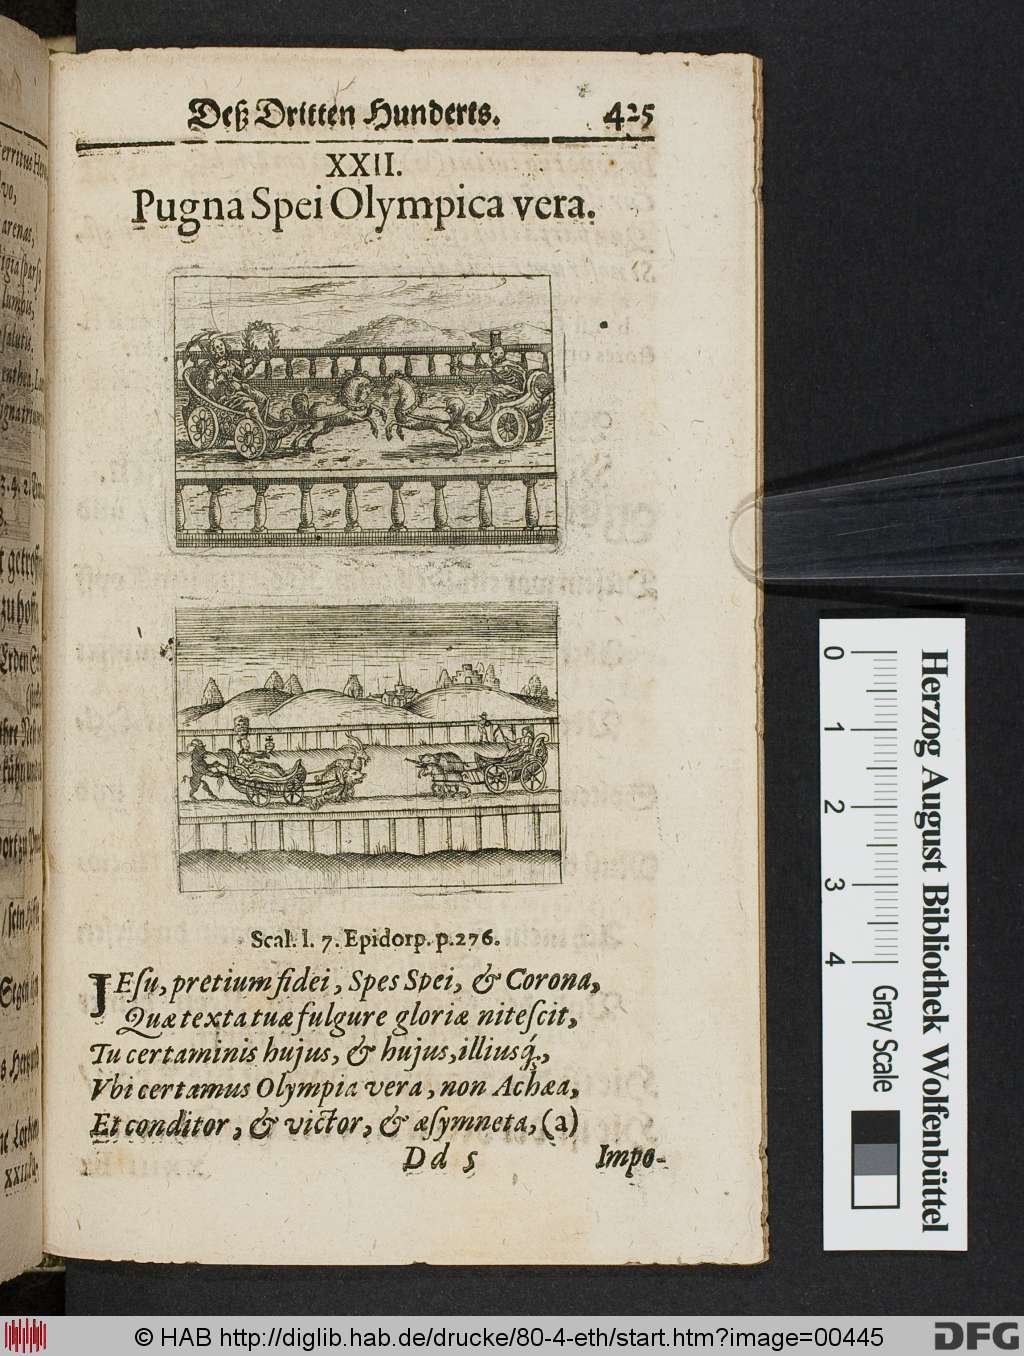 Deß Dritten Hunderts. 425
XXII.
Pugna Spei Olympica vera.
Scal. l. 7. Epidorp. p. 276.
JEſu, pretium fidei, Spes Spei, & Corona,
Quæ texta tuæ fulgure gloriæ niteſcit,
Tu certaminis hujus, & hujus, illiusq́;,
Vbi certamus Olympia vera, non Achæa,
Et conditor, & victor, & æſymneta, (a)
D d 5 Impo-
0
1
2
3
4
Gray Scale
Herzog August Bibliothek Wolfenbüttel
© HAB http://diglib.hab.de/drucke/80-4-eth/start.htm?image=00445
DFG